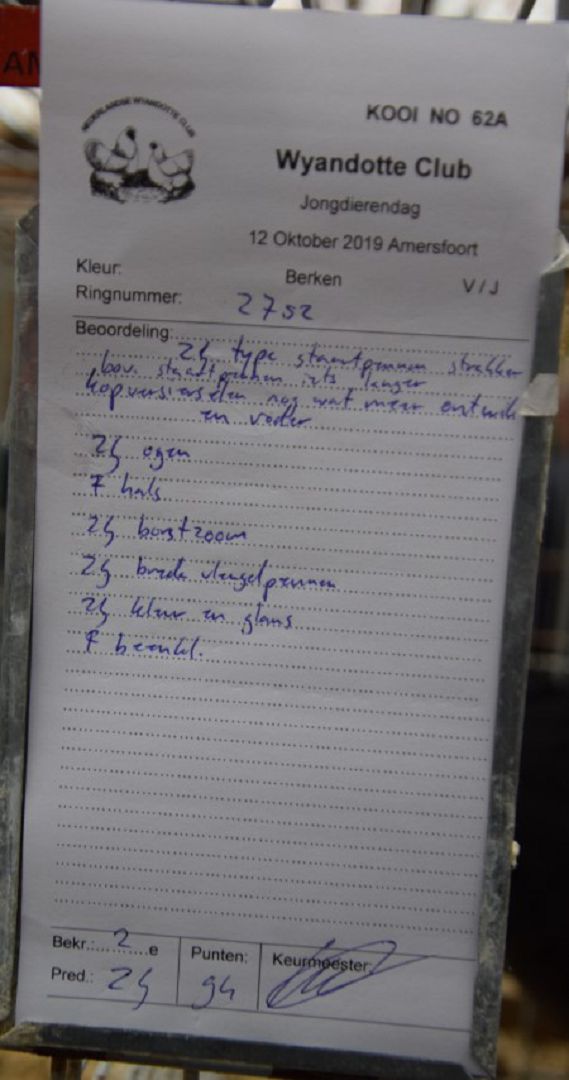 AM
NEDERLANDSE WYANDOTTE CLUB
KOOI NO 62A
Wyandotte Club
Jongdierendag
12 Oktober 2019 Amersfoort
Kleur: Berken V / J
Ringnummer: 2752
Beoordeling:
ZG type staartpennen strakker
bov. staartpennen iets langer
kopversierselen nog wat meer ontwik
en veder
ZG ogen
F hals
ZG borstzoom
ZG brede vleugelpennen
ZG kleur en glans
F beenkl.
Bekr.: 2 e Punten: Keurmeester:
Pred.: ZG 94